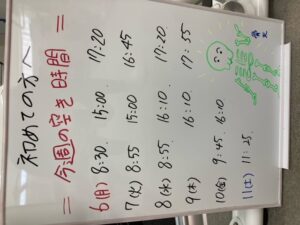 初めての方へ
= 今週の空き時間 =
6(月) 8:30. 15:00. 17:20
7(火) 8:55 15:00 16:45
8(水) 8:55. 16:10. 17:20
9(木) 16:10. 17:55
10(金) 9:45. 16:10
11(土) 11:25